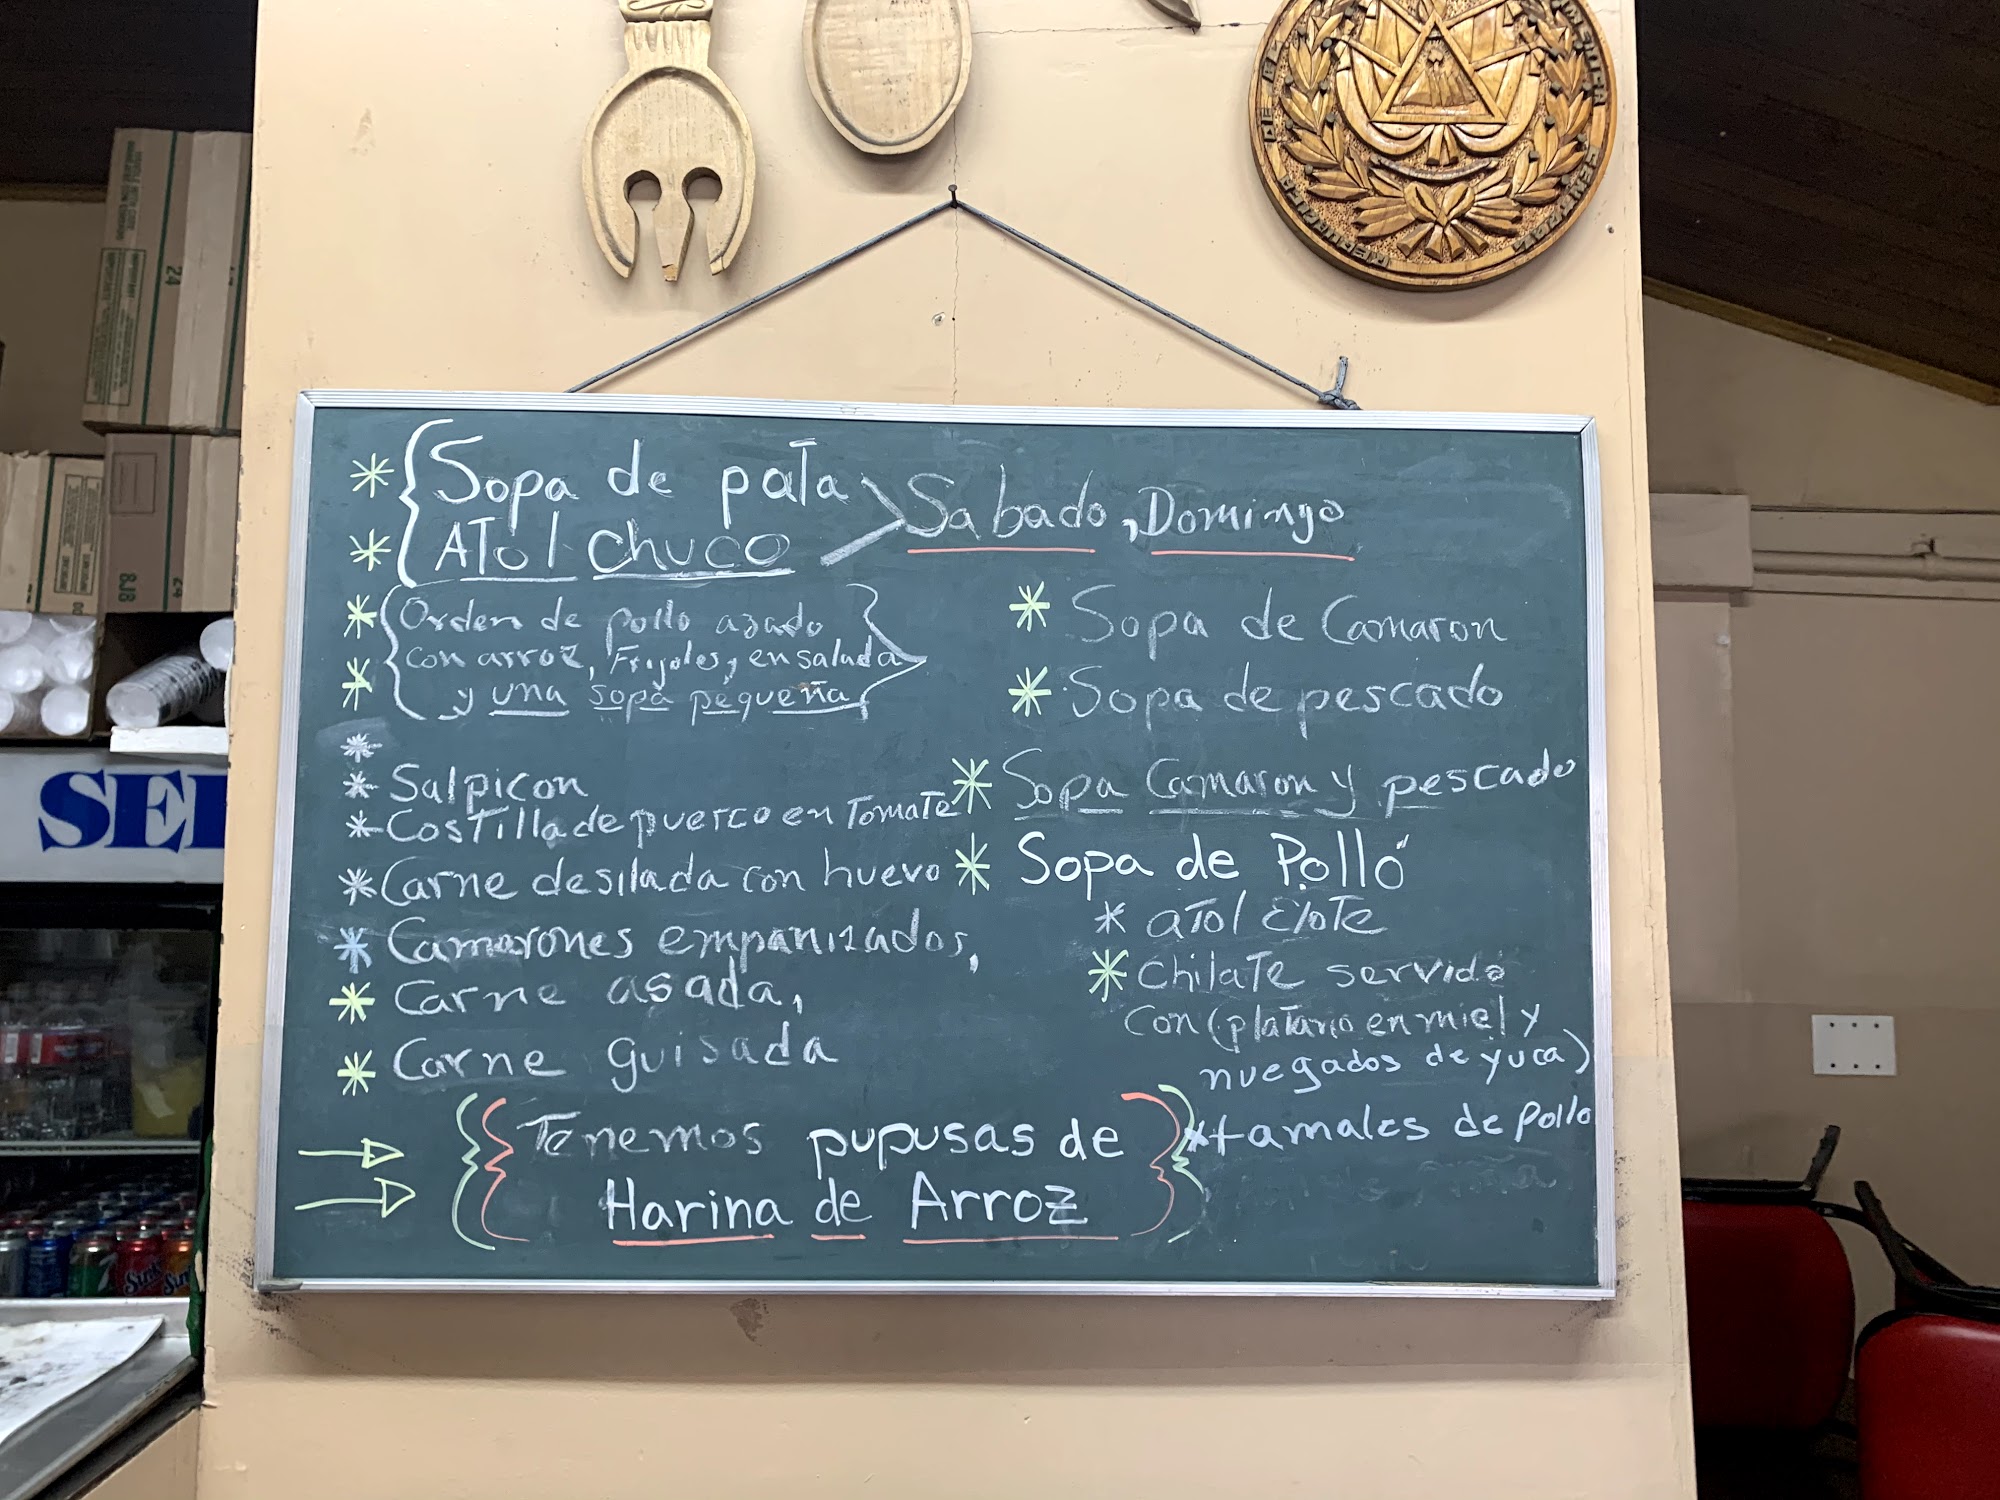 DE EL
Sopa de pata
Atol Chuco
Sabado, Domingo
Orden de pollo azado
con arroz, Frijoles, ensalada
y una sopa pequeña
Salpicon
Costilla de puerco en Tomate
Carne desilada con huevo
Camarones empanizados,
Carne asada,
Carne guisada
Sopa de Camaron
Sopa de pescado
Sopa Camaron y pescado
Sopa de Pollo
atol Elote
Chilate servido
Con (platano en miel y
nuegados de yuca)
tamales de pollo
Tenemos pupusas de
Harina de Arroz
24
8J8